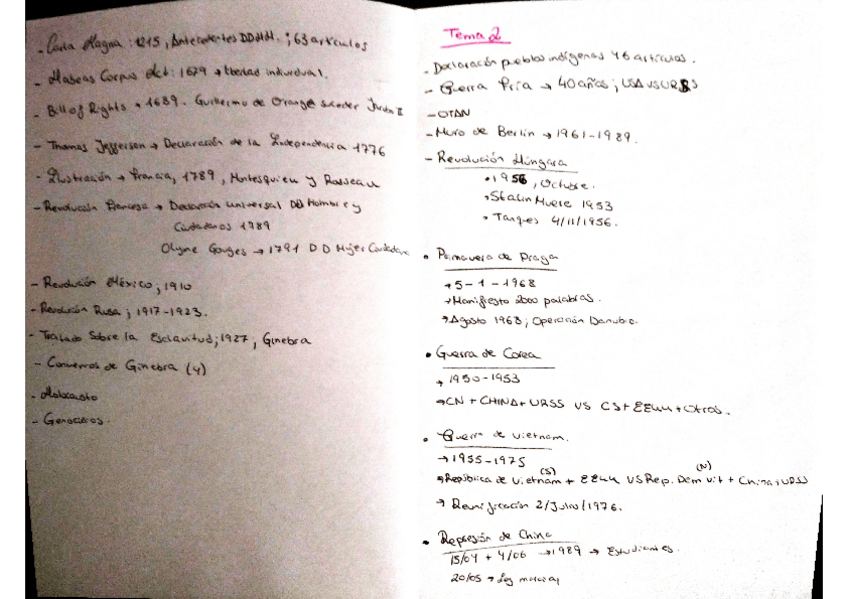 - Carta Magna : 1215, Antecedentes DDHH. ; 63 artículos
- Habeas Corpus Act : 1679 → libertad individual.
- Bill of Rights → 1689. Guillermo de Orange suceder Jacobo II
- Thomas Jefferson → Declaración de la Independencia 1776
- Ilustración → Francia, 1789, Montesquieu y Rosseau
- Revolución Francesa → Declaración universal del Hombre y
Ciudadanos 1789
Olype Gouges → 1791 D D Mujer Ciudadana
- Revolución México, 1910
- Revolución Rusa ; 1917-1923.
- Tratado Sobre la Esclavitud ; 1927, Ginebra
- Convenios de Ginebra (4)
- Holocausto
- Genocidios.
Tema 2
- Declaración pueblos indígenas 46 artículos.
- Guerra Fría → 40 años ; USA vs URSS
- OTAN
- Muro de Berlín → 1961-1989.
- Revolución Húngara
• 1956, Octubre.
• Stalin Muere 1953
• Tanques 4/11/1956.
• Primavera de Praga
→ 5-1-1968
→ Manifiesto 2000 palabras.
→ Agosto 1968; Operación Danubio.
• Guerra de Corea
→ 1950-1953
→ CN + CHINA + URSS VS CS + EEUU + Otros..
• Guerra de Vietnam.
→ 1955-1975
→ República de Vietnam (S) + EEUU VS Rep. Dem Vit (N) + China + URSS
→ Reunificación 2/Julio/1976.
• Represión de China
15/04 + 4/06 → 1989 → Estudiantes.
20/05 → Ley marcial